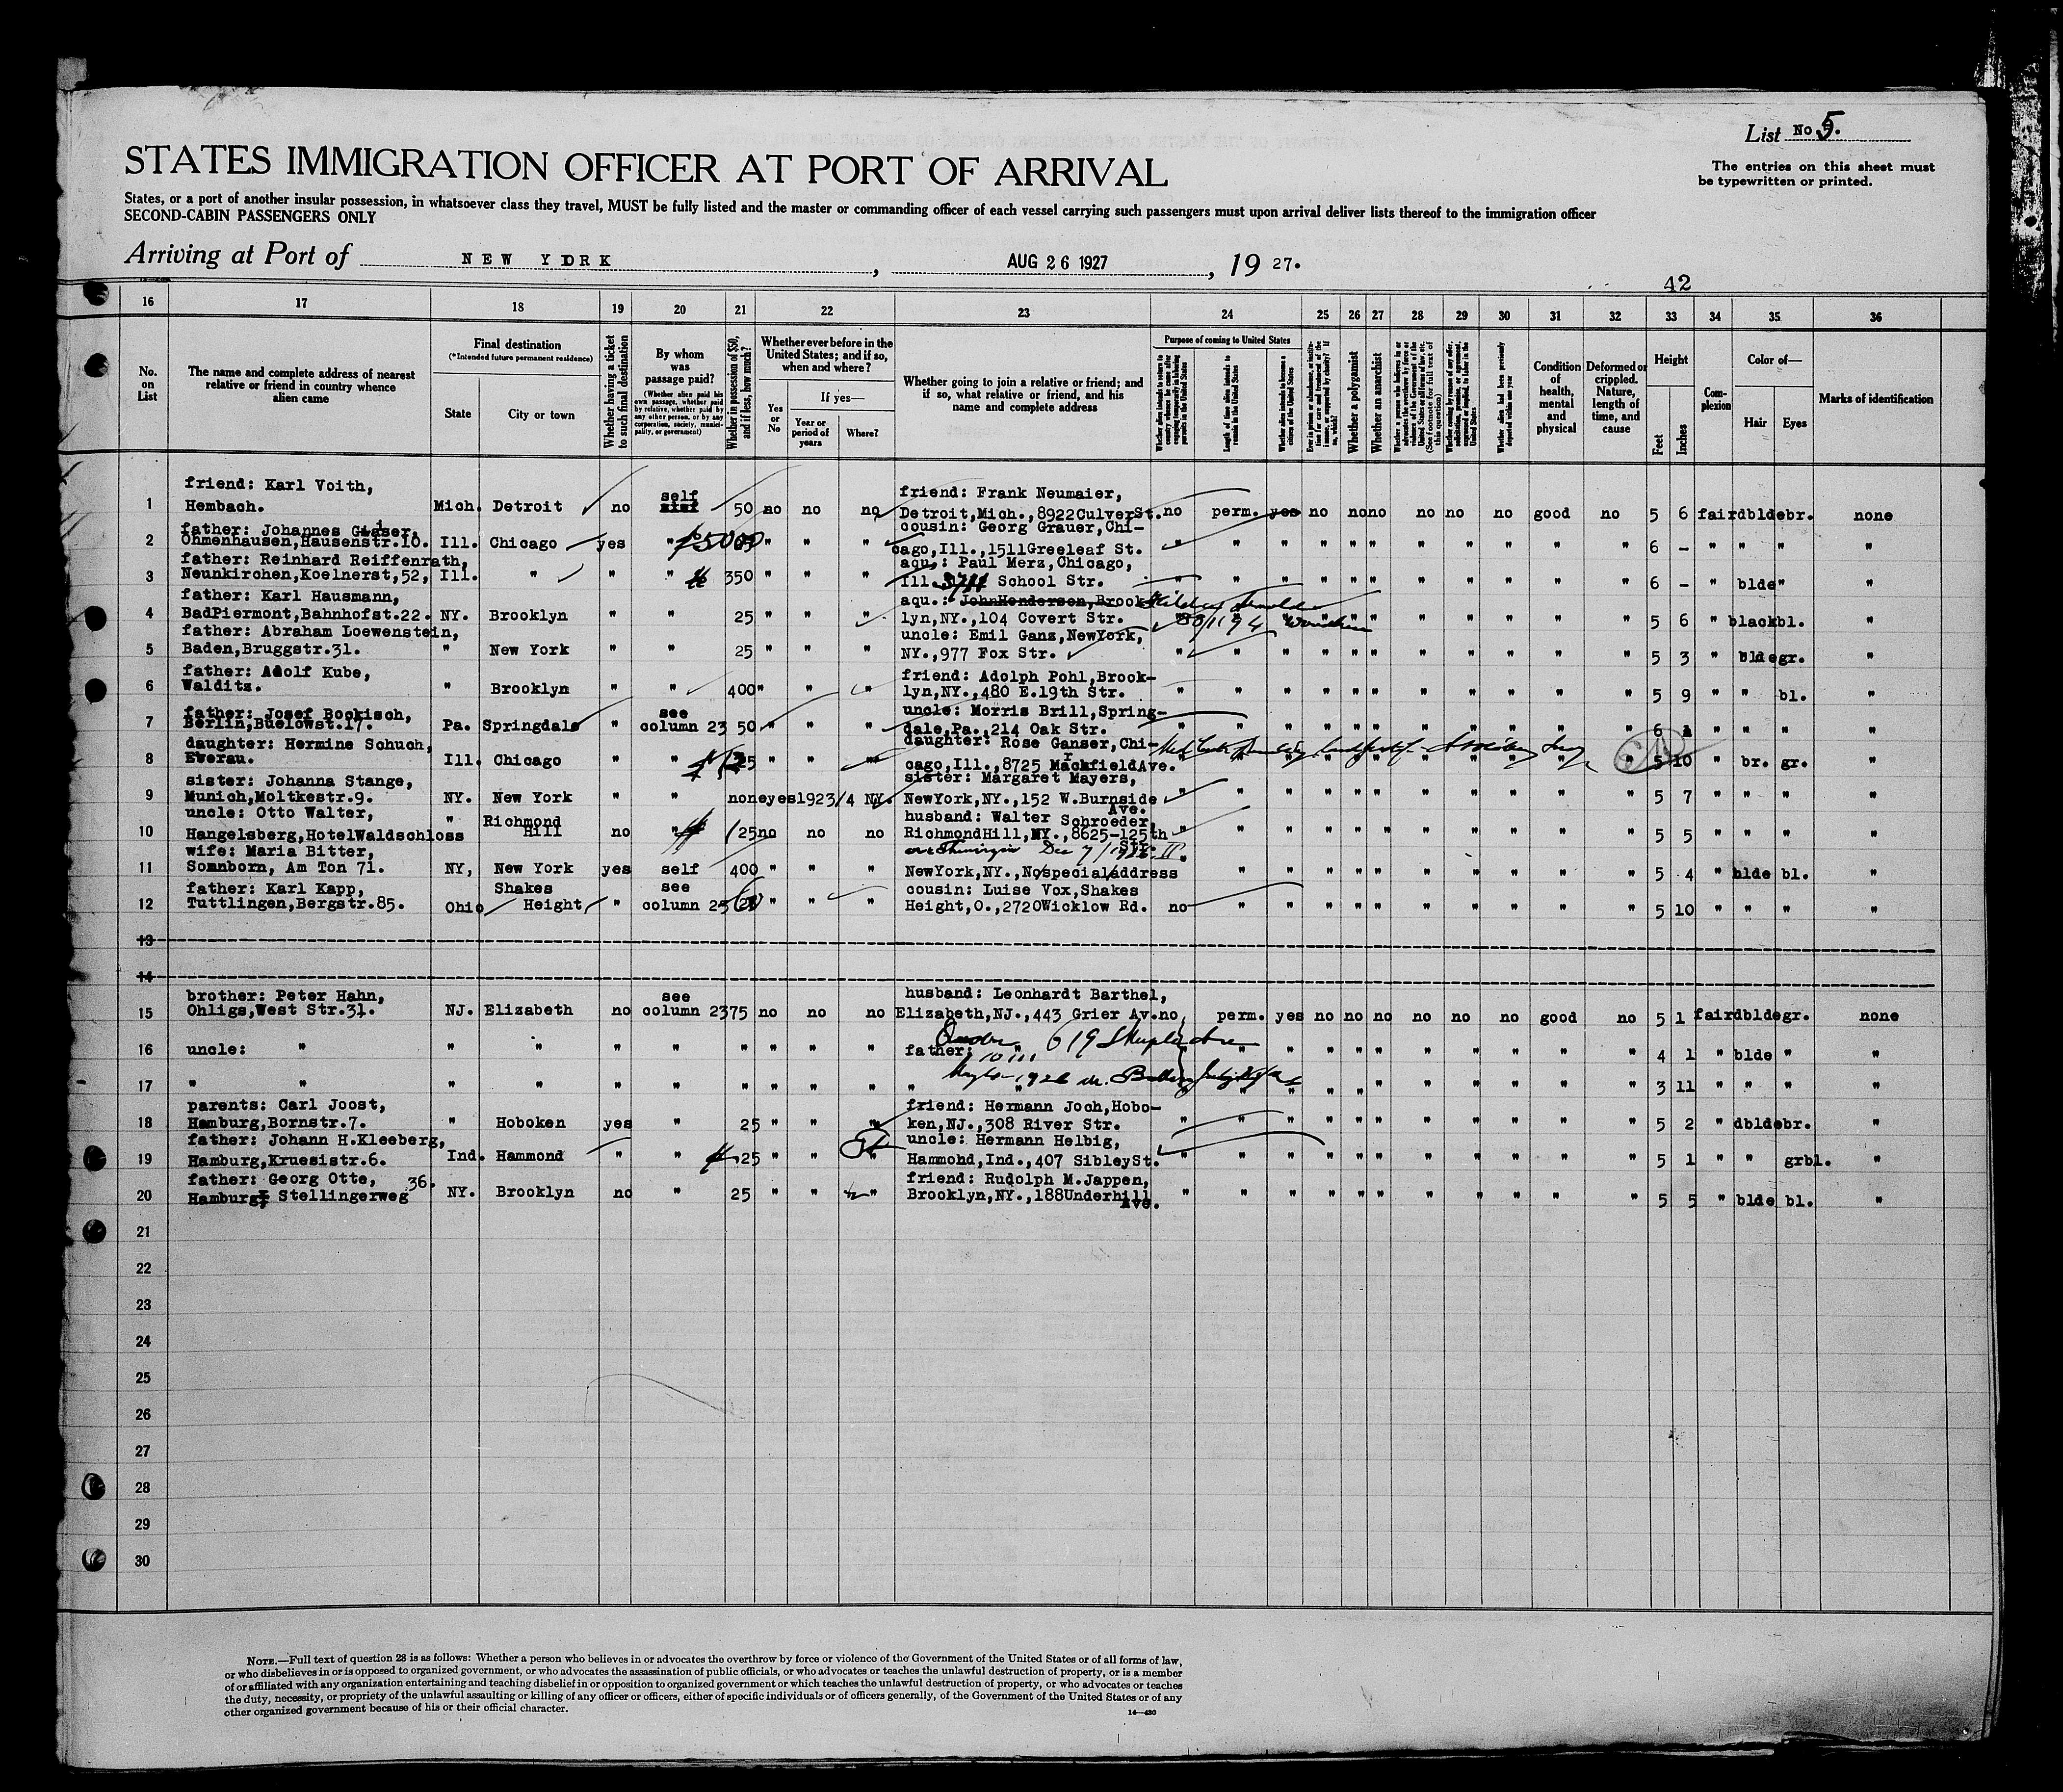 List No. 5.
The entries on this sheet must
be typewritten or printed.
STATES IMMIGRATION OFFICER AT PORT OF ARRIVAL
States, or a port of another insular possession, in whatsoever class they travel, MUST be fully listed and the master or commanding officer of each vessel carrying such passengers must upon arrival deliver lists thereof to the immigration officer
SECOND-CABIN PASSENGERS ONLY
Arriving at Port of NEW YORK, AUG 26 1927, 19 27.
42
16 17 18 19 20 21 22 23 24 25 26 27 28 29 30 31 32 33 34 35 36
No. on List
The name and complete address of nearest relative or friend in country whence alien came
Final destination
(*Intended future permanent residence)
State City or town
Whether having a ticket to such final destination
By whom was passage paid?
(Whether alien paid his own passage, whether paid by relative, whether paid by any other person, or by any corporation, society, municipality, or government)
Whether in possession of $50, and if less, how much?
Whether ever before in the United States; and if so, when and where?
Yes or No
If yes—
Year or period of years
Where?
Whether going to join a relative or friend; and if so, what relative or friend, and his name and complete address
Purpose of coming to United States
Length of time alien intends to remain in the United States
Whether alien intends to become a citizen of the United States
Whether a polygamist
Whether an anarchist
Whether alien had been previously deported within one year
Condition of health, mental and physical
Deformed or crippled. Nature, length of time, and cause
Height
Feet Inches
Complexion
Color of—
Hair Eyes
Marks of identification
friend: Karl Voith, self friend: Frank Neumaier,
1 Hembach. Mich. Detroit no 50 no no no Detroit,Mich.,8922CulverSt. no perm. yes no no no no no no good no 5 6 fair dblde br. none
father: Johannes cousin: Georg Grauer, Chi-
2 Ohmenhausen,Hausenstr.10. Ill. Chicago yes " " " " cago,Ill.,1511Greeleaf St. " " " " " " " " " " " 6 - " " " "
father: Reinhard Reiffenrath, aqu.: Paul Merz,Chicago,
3 Neunkirchen,Koelnerst,52, Ill. " " " 350 " " " Ill. School Str. " " " " " " " " " " " 6 - " blde " "
father: Karl Hausmann, aqu.: JohnHenderson,Brook-
4 BadPiermont,Bahnhofst.22. NY. Brooklyn " " 25 " " " lyn,NY.,104 Covert Str. " " " " " " " " " " 5 6 " black bl. "
father: Abraham Loewenstein, uncle: Emil Ganz,NewYork,
5 Baden,Bruggstr.31. " New York " " 25 " " " NY.,977 Fox Str. " " " " " " " " " " " 5 3 " blde gr. "
father: Adolf Kube, friend: Adolph Pohl,Brook-
6 Walditz. " Brooklyn " " 400 " " " lyn,NY.,480 E.19th Str. " " " " " " " " " " " 5 9 " " bl. "
father: Josef Bockisch, see uncle: Morris Brill,Spring-
7 Berlin,Buelowst.17. Pa. Springdale " column 23 50 " " " dale,Pa.,214 Oak Str. " " " " " " " " " " " 6 " " " "
daughter: Hermine Schuch, daughter: Rose Ganser,Chi-
8 Ewerau. Ill. Chicago " " 25 " " " cago,Ill.,8725 MarkfieldAve. " " " " " " " " 5 10 " br. gr. "
sister: Johanna Stange, sister: Margaret Mayers,
9 Munich,Moltkestr.9. NY. New York " " none yes 1923/4 NY. NewYork,NY.,152 W.Burnside Ave. " " " " " " " " " " 5 7 " " " "
uncle: Otto Walter, Richmond husband: Walter Schroeder,
10 Hangelsberg,HotelWaldschloss " Hill no " 25 no no no RichmondHill,NY.,8625-125th Str. " " " " " " " " " " " 5 5 " " " "
wife: Maria Bitter,
11 Sonnborn, Am Ton 71. NY, New York yes self 400 " " " NewYork,NY.,Nospecialaddress " " " " " " " " " " " 5 4 " blde bl. "
father: Karl Kapp, Shakes see cousin: Luise Vox,Shakes
12 Tuttlingen,Bergstr.85. Ohio Height, " column 23 " " " Height,O.,2720Wicklow Rd. no " " " " " " " " " " 5 10 " " " "
13
14
brother: Peter Hahn, see husband: Leonhardt Barthel,
15 Ohligs,West Str.31. NJ. Elizabeth no column 23 75 no no no Elizabeth,NJ.,443 Grier Av. no perm. yes no no no no no no good no 5 1 fair dblde gr. none
16 uncle: " " " " " " " " " father: " " " " " " " " " " 4 1 " blde " "
17 " " " " " " " " " " " " " " " " " " " " " 3 11 " " " "
parents: Carl Joost, friend: Hermann Joch,Hobo-
18 Hamburg,Bornstr.7. " Hoboken yes " 25 " " " ken,NJ.,308 River Str. " " " " " " " " " " " 5 2 " dblde br. "
father: Johann H.Kleeberg, uncle: Hermann Helbig,
19 Hamburg,Kruesistr.6. Ind. Hammond " " 25 " " " Hammond,Ind.,407 SibleySt. " " " " " " " " " " " 5 1 " " grbl. "
father: Georg Otte, 36. friend: Rudolph M.Jappen,
20 Hamburg, Stellingerweg NY. Brooklyn no " 25 " " " Brooklyn,NY.,188Underhill Ave. " " " " " " " " " " " 5 5 " blde bl. "
21
22
23
24
25
26
27
28
29
30
NOTE.—Full text of question 28 is as follows: Whether a person who believes in or advocates the overthrow by force or violence of the Government of the United States or of all forms of law,
or who disbelieves in or is opposed to organized government, or who advocates the assassination of public officials, or who advocates or teaches the unlawful destruction of property, or is a member
of or affiliated with any organization entertaining and teaching disbelief in or opposition to organized government or which teaches the unlawful destruction of property, or who advocates or teaches
the duty, necessity, or propriety of the unlawful assaulting or killing of any officer or officers, either of specific individuals or of officers generally, of the Government of the United States or of any
other organized government because of his or their official character.
14—430